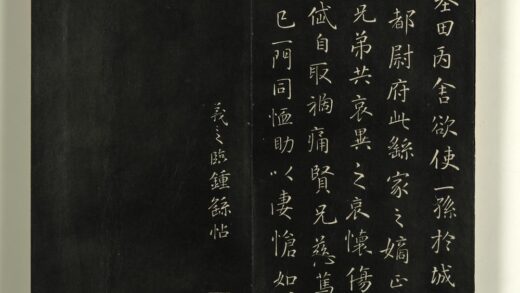 田丙舍欲使一孫於城
都尉府此繇家之嫡正
兄弟共哀異之哀懷傷
岱自取禍痛賢兄慈篤
已一門同恤助以悽愴如
羲之臨鍾繇帖